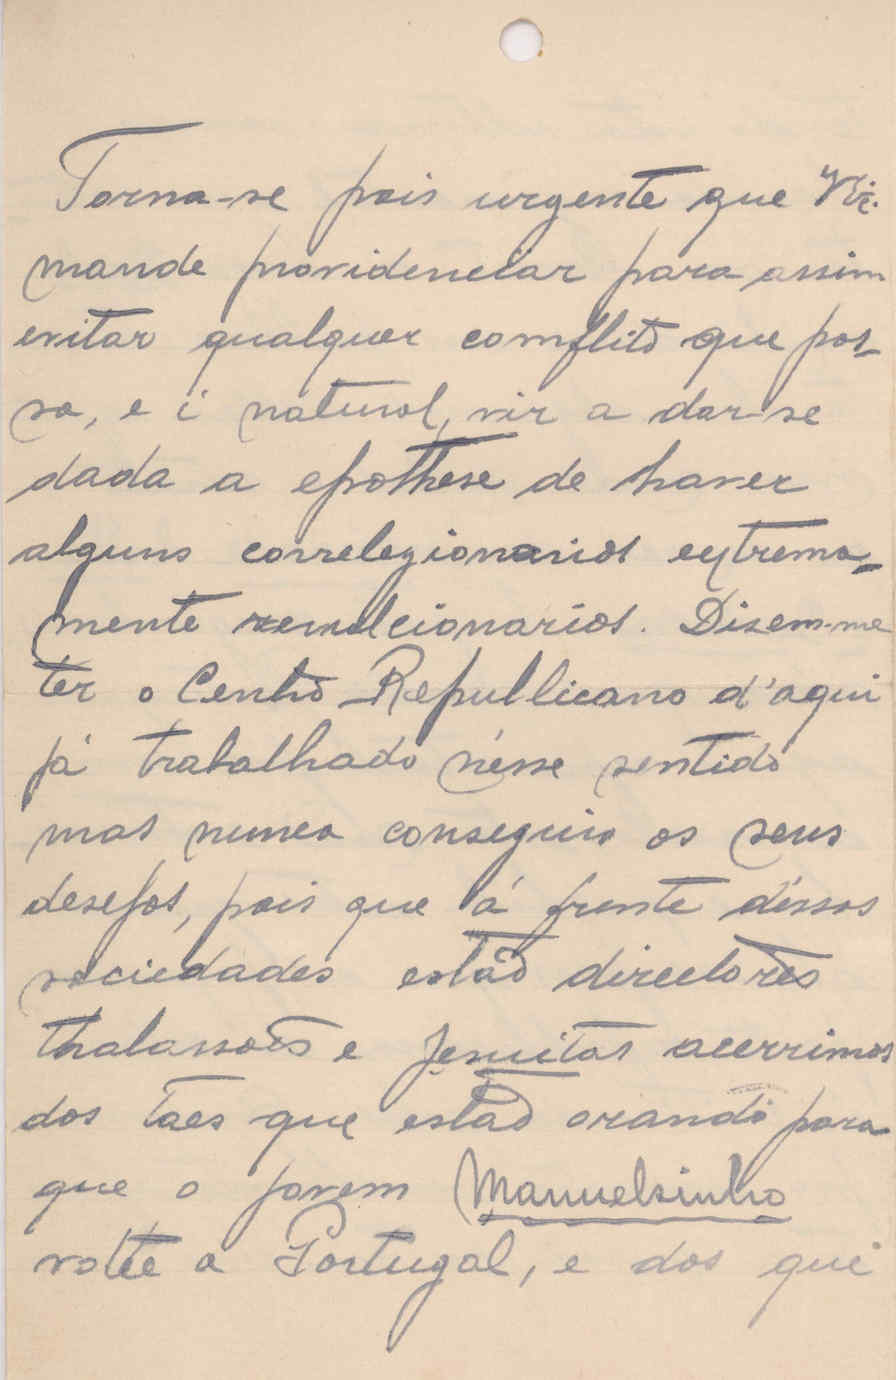 Torna-se pois urgente que V.Ex.
mande providenciar para assim
evitar qualquer comflito que pos-
sa, e é natural, vir a dar-se
dada a epothese de haver
alguns correlegionarios extrema-
mente revulcionarios. Disem-me
ter o Centro Republicano d'aqui
já trabalhado n'esse sentido
mas nunca conseguio os seus
desejos, pois que á frente d'essas
sociedades estão directores
thalassoēs e Jesuitas acerrimos
dos taes que estão orando para
que o jovem Manuelsinho
volte a Portugal, e dos que